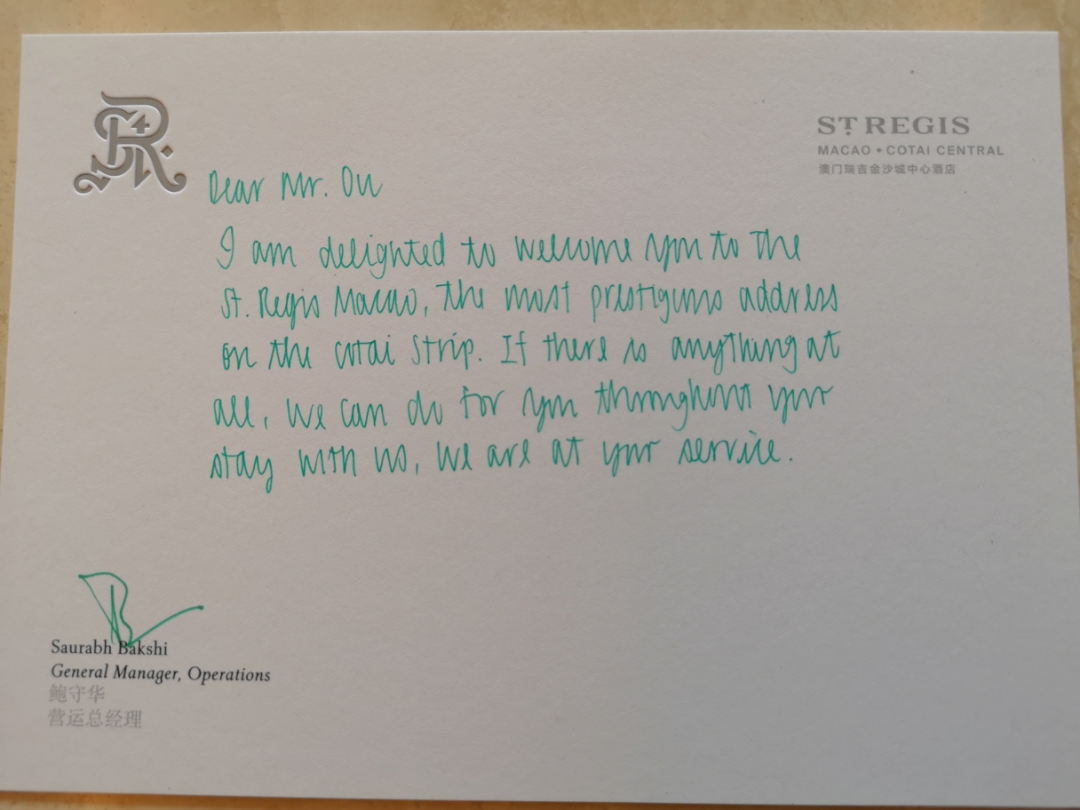 ST REGIS
MACAO • COTAI CENTRAL
澳门瑞吉金沙城中心酒店
Dear Mr. Ou
I am delighted to welcome you to the
St. Regis Macao, the most prestigious address
on the cotai strip. If there is anything at
all, we can do for you throughout your
stay with us, we are at your service.
Saurabh Bakshi
General Manager, Operations
鲍守华
营运总经理